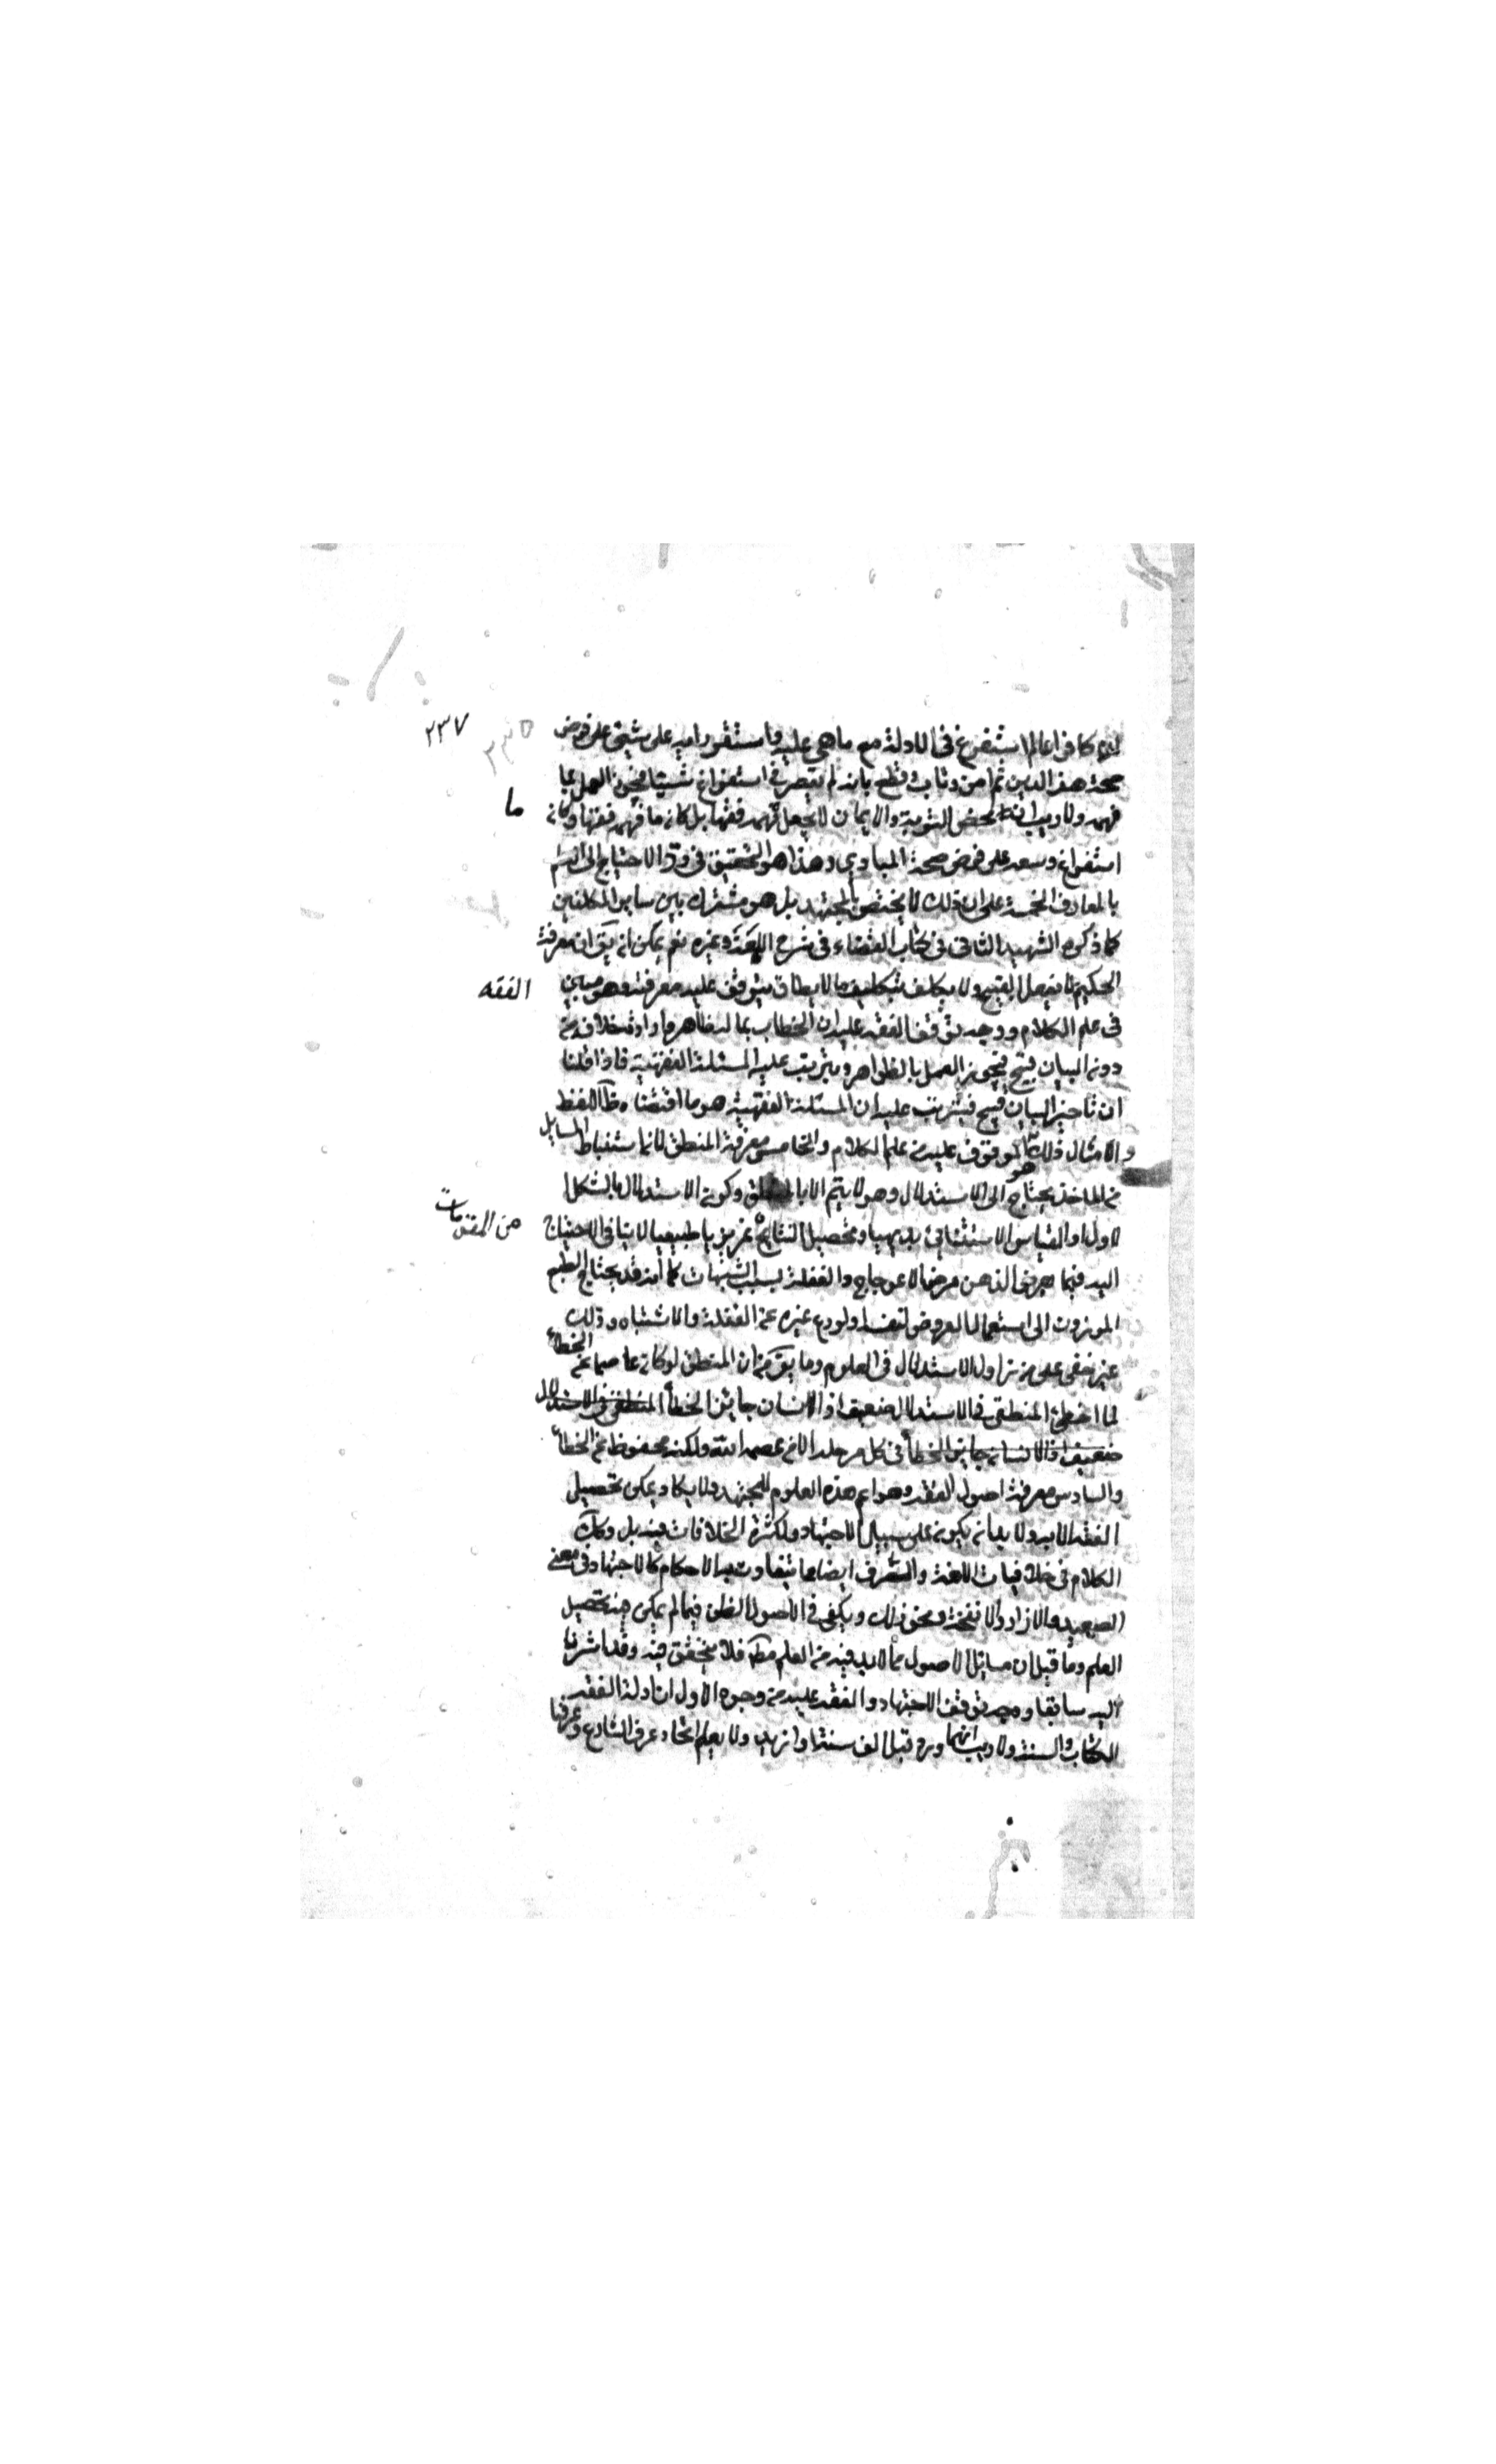 ٢٣٧
٢٣٥
كافرا عالما استفرغ فى الادلة مع ما هى عليه واستقر رايه على شيئ على فرض
صحة هذا الدين ثم امن وتاب وقطع بانه لم يقصر فى استفراغه شيئا فيجوز العمل بما
فهمه ولا ريب انه بمحض التوبة والايمان لا يجعل فهمه فقها بل كان ما فهمه فقها وكان
ما
استفراغ وسعه على فرض صحة المبادى وهذا هو التحقيق فى وجه الاحتياج الى
بالمعارف الخمسة على ان ذلك لا يختص بالمجتهد بل هو مشترك بين ساير المكلفين
كما ذكره الشهيد الثانى فى كتاب القضاء فى شرح اللمعة وغيره نعم يمكن ان يق ان معرفة
الحكيم لا يفعل القبيح ولا يكلف بتكليف ما لا يطاق يتوقف عليه معرفة وهو مبين
الفقه
فى علم الكلام ووجه توقف الفقه عليه ان الخطاب بما له ظاهر وارادة خلافه من
دون البيان قبيح فيجوز العمل بالظواهر ويترتب عليه المسئلة الفقهية فاذا قلنا
ان تاخير البيان قبيح فيترتب عليه ان المسئلة الفقهية هو ما اقتضاه اللفظ
والامثال ذلك موقوف عليه من علم الكلام والخامس معرفة المنطق لان استنباط المسايل
من الماخذ يحتاج الى الاستدلال وهو لا يتم الا بالمنطق وكون الاستدلال بالشكل
الاول او القياس الاستثنائى بديهيا وتحصيل النتايج غريزيا طبيعيا لا ينافى الاحتياج
من المقدمات
اليه فيما يعرض الذهن مرض الاعوجاج والغفلة بسبب الشبهات كما انه قد يحتاج الطبع
الموزون الى استعمال العروض لنفسه او لردع غيره عن الغفلة والاشتباه وذلك
غير خفى على من تزاول الاستدلال فى العلوم وما يق من ان المنطق لو كان عاصما عن الخطأ
لما اخطئ المنطقى فى الاستدلال ضعيف اذ الانسان جايز الخطأ المنطقى فى الاستدلال
ضعيف اذ الانسان جايز الخطأ فى كل مرحلة الا من عصمه الله ولكنه محفوظ عن الخطأ
والسادس معرفة اصول الفقه وهو اهم هذه العلوم للمجتهد ولا يكاد يمكن تحصيل
الفقه الا به ولا بد ان يكون على سبيل الاجتهاد ولكثرة الخلافات فيه بل وكك
الكلام فى خلافيات اللغة والصرف ايضا مما يتفاوت به الاحكام كالاجتهاد فى معنى
الصعيد والازار والانفحة ونحو ذلك ويكفى فى الاصول الظن فيما لم يمكن فيه تحصيل
العلم وما قيل ان مسايل الاصول مما لا بد فيه من العلم مط فلا تحقق فيه وقد اشرنا
اليه سابقا ووجه توقف الاجتهاد والفقه عليه من وجوه الاول ان ادلة الفقه
الكتاب والسنة ولا ريب انهما ورد قبل الف سنة او ازيد ولا يعلم اتحاد عرف الشارع وعرفنا